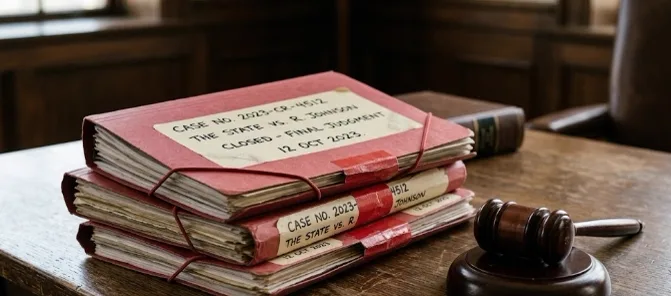 CASE NO. 2023-CR-4512
THE STATE VS. R. JOHNSON
CLOSED - FINAL JUDGMENT
12 OCT 2023
CASE NO. 2023- 4512
THE STATE VS. R. JOHNSON
12 OCT 2023